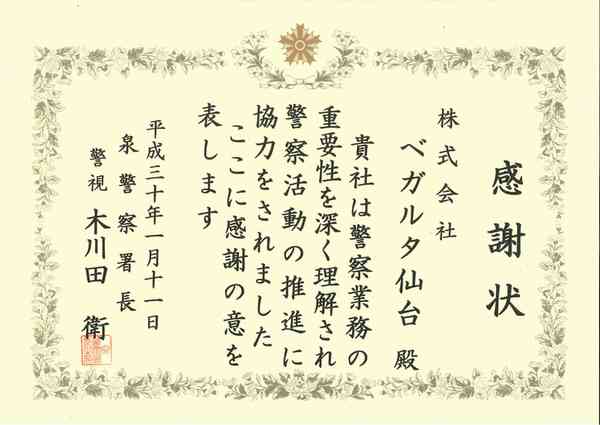 感謝状
株式会社
ベガルタ仙台 殿
貴社は警察業務の
重要性を深く理解され
警察活動の推進に
協力をされました
ここに感謝の意を
表します
平成三十年一月十一日
泉警察署長
警視 木川田 衛